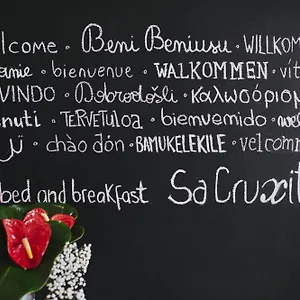 elcome · Beni Beniusu · WILLKOMM
anie · bienvenue · WALKOMMEN · vít
VINDO · Dobrodošli · Καλωσόρισμ
nuti · TERVETULOA · bienvenido · we
ü · chào đón · BAMUKELEKILE · velcomm
bed and breakfast Sa Cruxit